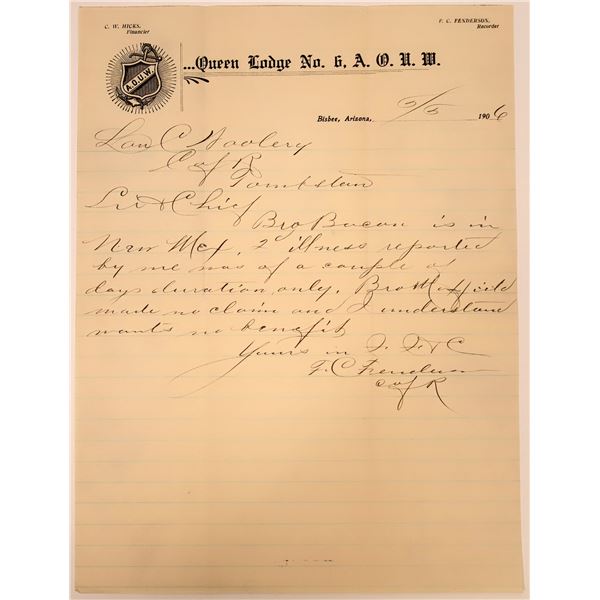 C. W. HICKS,
Financier
F. C. FENDERSON,
Recorder
A.O.U.W.
...Queen Lodge No. 6, A. O. U. W.
Bisbee, Arizona, 5/5 1906
Lou C Woolery
C of R
Tombstan
Sir & Chief
Bro Bacon is in
New Mex, 2" illness reported
by me was of a couple of
days duration only, Bro
made no claim and I understand
wants no benefit
Yours in F. F & C
F. C Fenderson
C of R